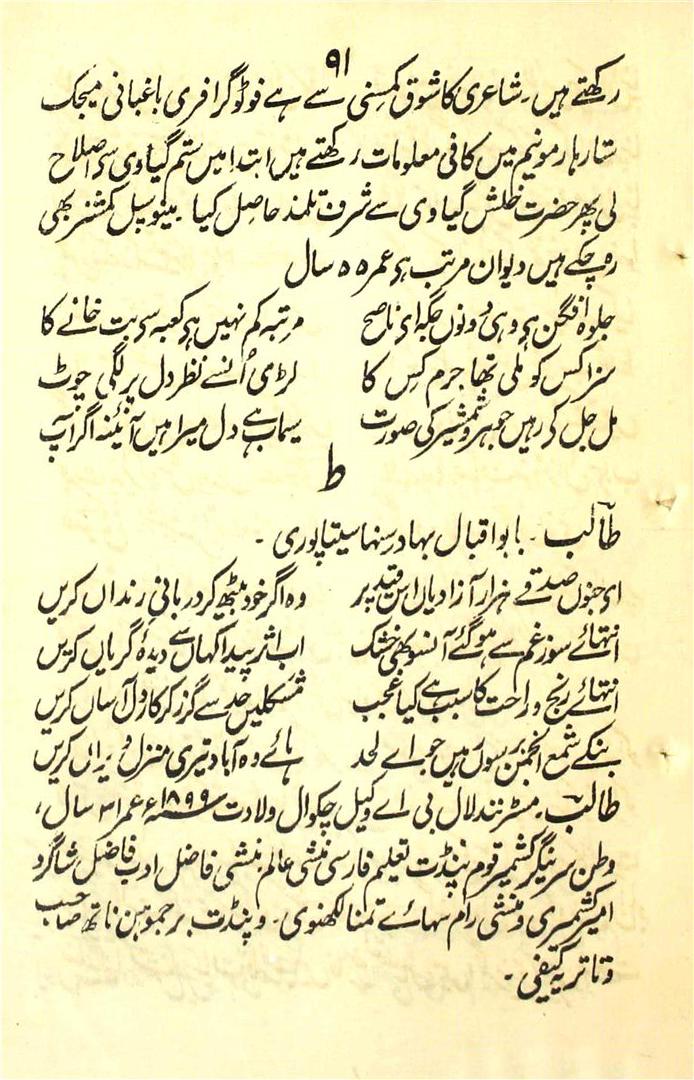 ۹۱
رکھتے ہیں۔ شاعری کا شوق کمسنی سے ہے فوٹوگرافری باغبانی میجک
ستار ہارمونیم میں کافی معلومات رکھتے ہیں ابتدا میں ستم گیاوی سے اصلاح
لی پھر حضرت خلش گیاوی سے شرف تلمذ حاصل کیا۔ میونسپل کمشنر بھی
رہ چکے ہیں دیوان مرتب ہے عمر ۵۵ سال
جلوہ افگن ہے وہی دونوں جگہ اے ناصح مرتبہ کم نہیں ہے کعبہ سے بت خانے کا
سزا کس کو ملی تھا جرم کس کا لڑی اُنسے نظر دل پر لگی چوٹ
مل جل کے رہیں جوہر و شمشیر کی صورت سیماب ہے دل میرا ہیں آئینہ اگر آپ
ط
طالب۔ بابو اقبال بہادر سنہا سیتاپوری۔
اے جنوں صدقے ہزار آزادیاں اس قید پر وہ اگر خود بیٹھ کر دربانیِ زنداں کریں
انتہائے سوز غم سے ہو گئے آنسو بھی خشک اب اثر پیدا کہاں سے دیدۂ گریاں کریں
انتہائے رنج و راحت کا سبب ہے کیا عجب مشکلیں حد سے گزر کر کار دل آساں کریں
بنکے شمع انجمن برسوں رہیں جو اے لحد ہائے وہ آباد تیری منزل ویراں کریں
طالب۔ مسٹر نند لال بی اے وکیل چکوال ولادت سنہ ۱۸۹۹ء عمر ۳۱ سال،
وطن سرینگر کشمیر قوم پنڈت تعلیم فارسی منشی عالم منشی فاضل ادب فاضل شاگرد
امیر کشمیری و منشی رام سہائے تمنا لکھنوی۔ و پنڈت برجموہن ناتھ صاحب
دتاتریہ کیفی۔